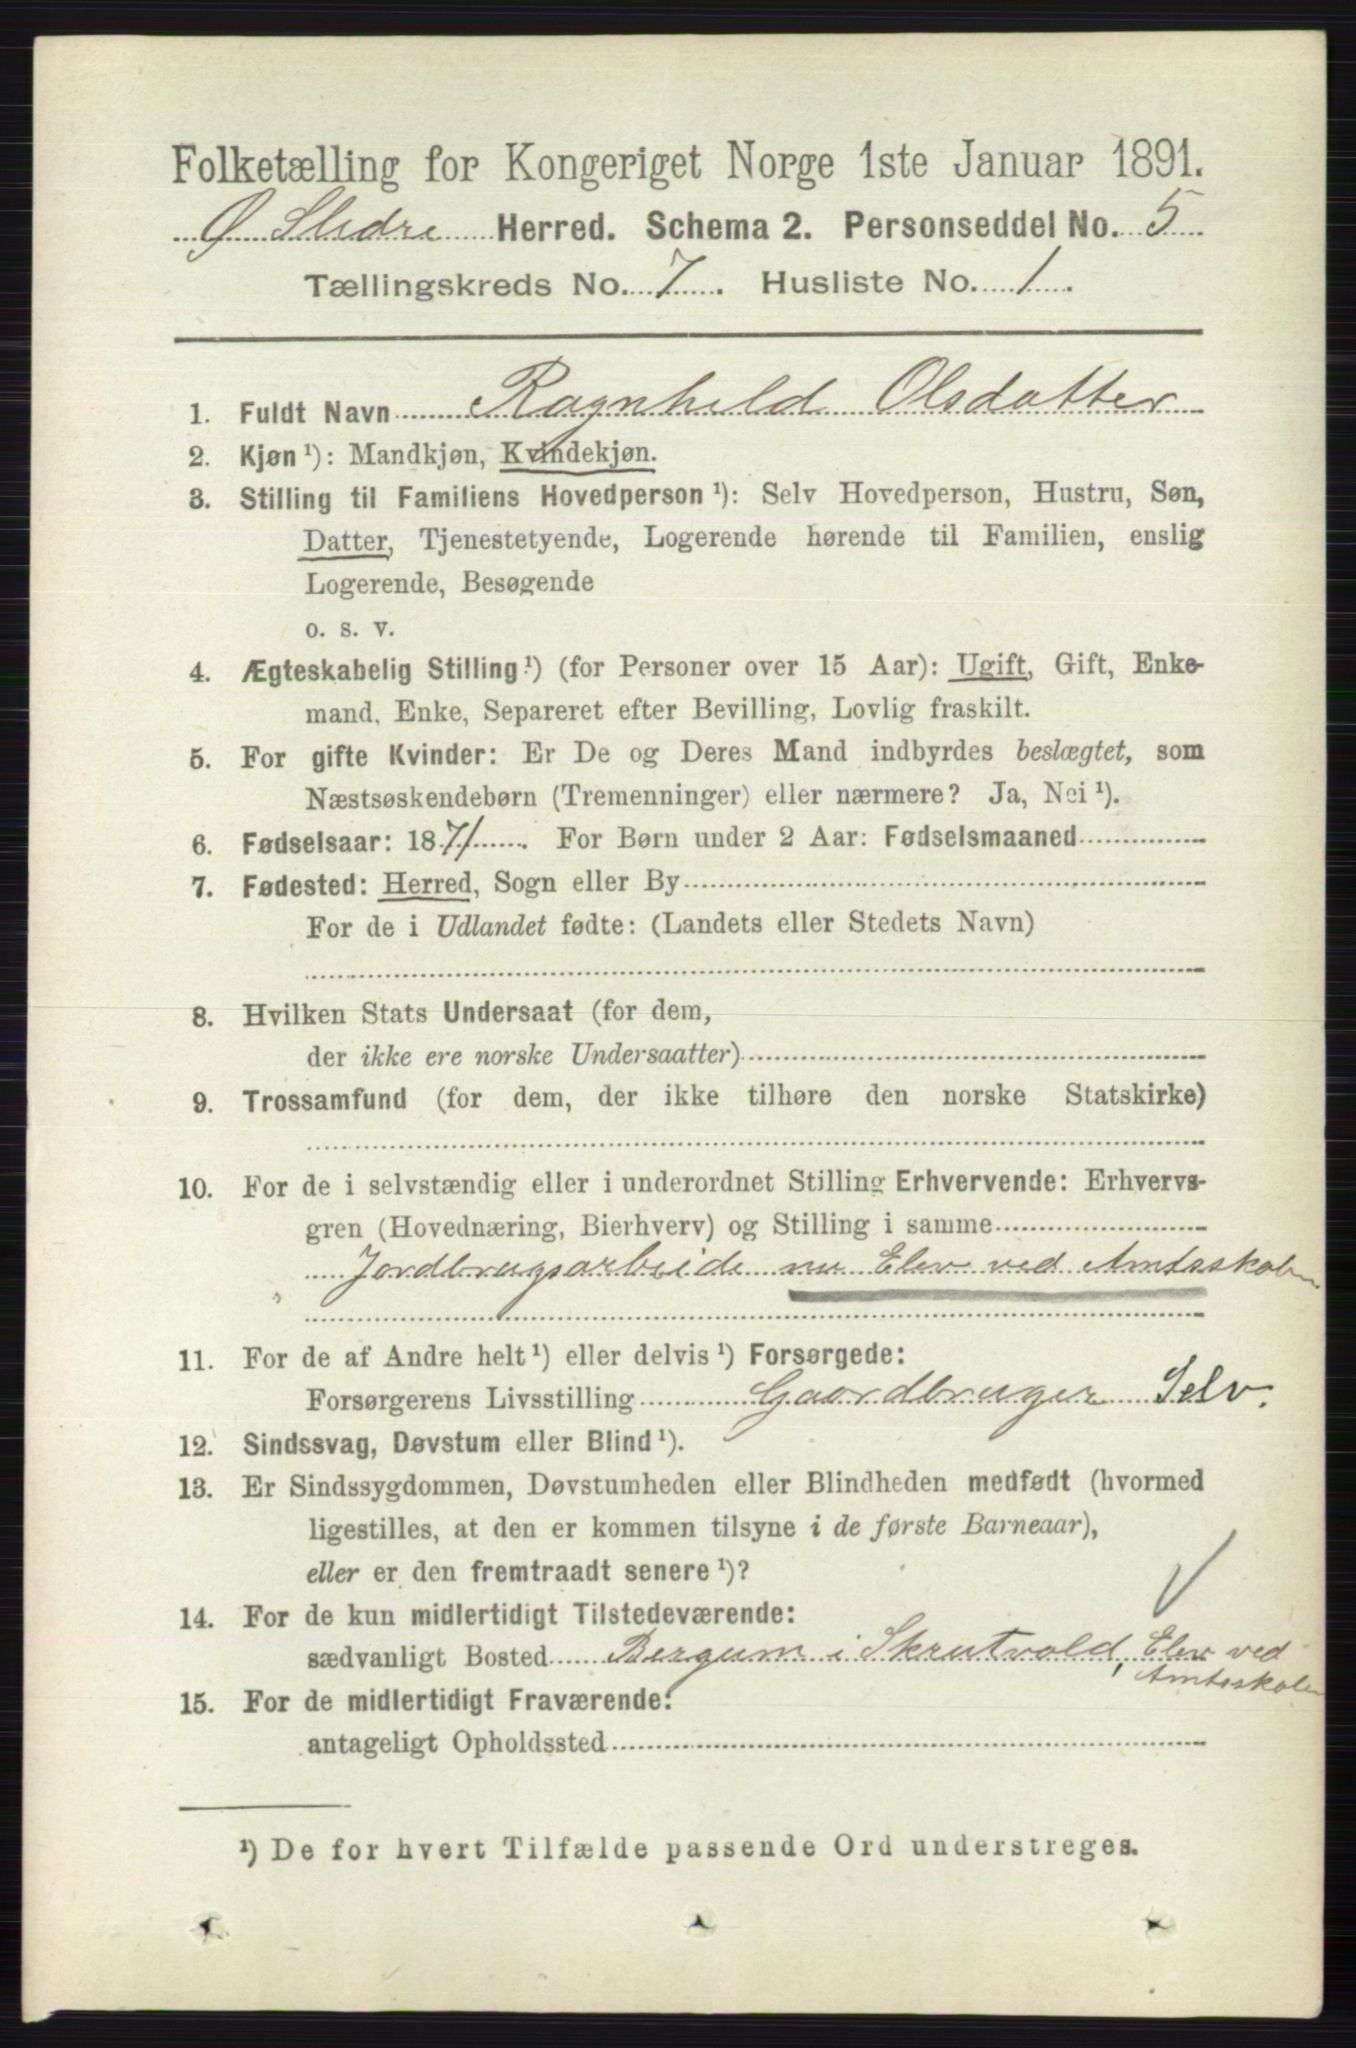 Folketælling for Kongeriget Norge 1ste Januar 1891.
Ø Slidre Herred. Schema 2. Personseddel No. 5
Tællingskreds No. 7. Husliste No. 1.
1. Fuldt Navn Ragnhild Olsdatter
2. Kjøn ¹): Mandkjøn, Kvindekjøn.
3. Stilling til Familiens Hovedperson ¹): Selv Hovedperson, Hustru, Søn,
Datter, Tjenestetyende, Logerende hørende til Familien, enslig
Logerende, Besøgende
o. s. v.
4. Ægteskabelig Stilling ¹) (for Personer over 15 Aar): Ugift, Gift, Enke-
mand, Enke, Separeret efter Bevilling, Lovlig fraskilt.
5. For gifte Kvinder: Er De og Deres Mand indbyrdes beslægtet, som
Næstsøskendebørn (Tremenninger) eller nærmere? Ja, Nei ¹).
6. Fødselsaar: 1871. For Børn under 2 Aar: Fødselsmaaned
7. Fødested: Herred, Sogn eller By
For de i Udlandet fødte: (Landets eller Stedets Navn)
8. Hvilken Stats Undersaat (for dem,
der ikke ere norske Undersaatter)
9. Trossamfund (for dem, der ikke tilhøre den norske Statskirke)
10. For de i selvstændig eller i underordnet Stilling Erhvervende: Erhvervs-
gren (Hovednæring, Bierhverv) og Stilling i samme
Jordbrugsarbeide nu Elev ved Amtsskolen
11. For de af Andre helt ¹) eller delvis ¹) Forsørgede:
Forsørgerens Livsstilling Gaardbruger Selv.
12. Sindssvag, Døvstum eller Blind ¹).
13. Er Sindssygdommen, Døvstumheden eller Blindheden medfødt (hvormed
ligestilles, at den er kommen tilsyne i de første Barneaar),
eller er den fremtraadt senere ¹)?
14. For de kun midlertidigt Tilstedeværende:
sædvanligt Bosted Bergum i Skrutvold, Elev ved
Amtsskolen
15. For de midlertidigt Fraværende:
antageligt Opholdssted
¹) De for hvert Tilfælde passende Ord understreges.